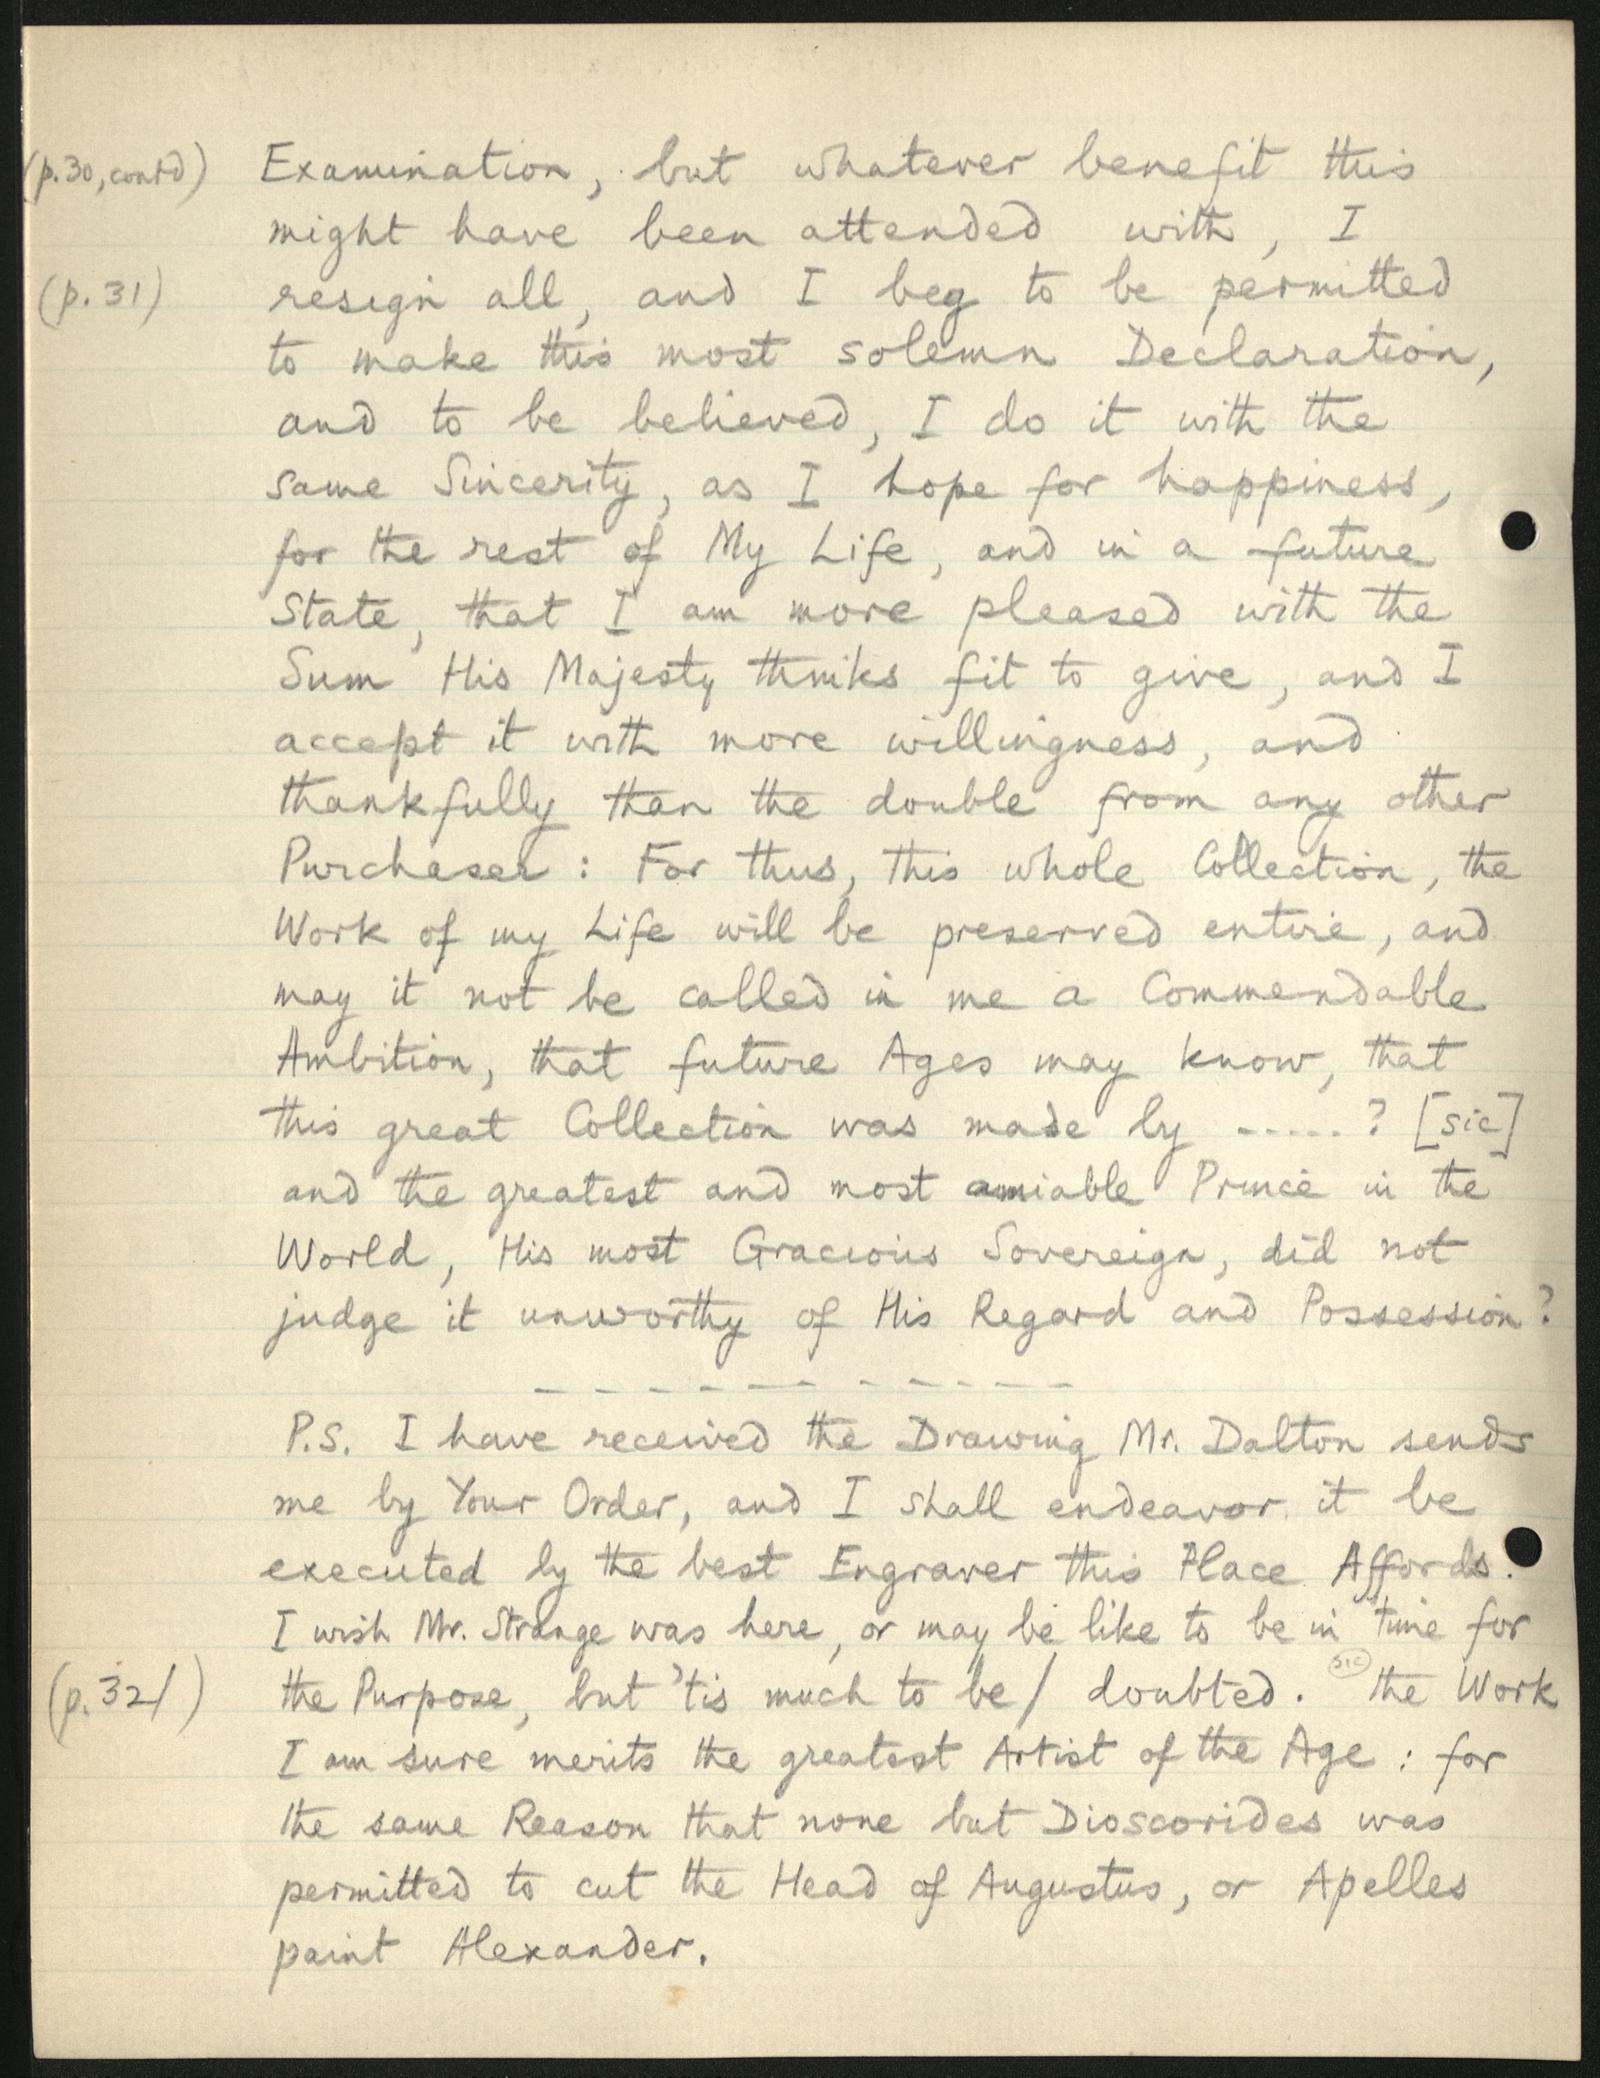 (p.30, contd) Examination, but whatever benefit this
might have been attended with, I
(p. 31) resign all, and I beg to be permitted
to make this most solemn Declaration,
and to be believed, I do it with the
same Sincerity, as I hope for happiness,
for the rest of My Life, and in a future
State, that I am more pleased with the
Sum His Majesty thinks fit to give, and I
accept it with more willingness, and
thankfully than the double from any other
Purchaser : For thus, this whole Collection, the
Work of my Life will be preserved entire, and
may it not be called in me a Commendable
Ambition, that future Ages may know, that
this great Collection was made by -----? [sic]
and the greatest and most amiable Prince in the
World, His most Gracious Sovereign, did not
judge it unworthy of His Regard and Possession?
— — — — — — — — — —
P.S. I have received the Drawing Mr. Dalton sends
me by Your Order, and I shall endeavor it be
executed by the best Engraver this Place Affords.
I wish Mr. Strange was here, or may be like to be in time for
(p. 32/) the Purpose, but 'tis much to be/ doubted. (sic) the Work
I am sure merits the greatest Artist of the Age : for
the same Reason that none but Dioscorides was
permitted to cut the Head of Augustus, or Apelles
paint Alexander.